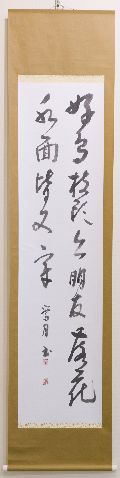 好鳥枝頭亦朋友落花
水面皆文章